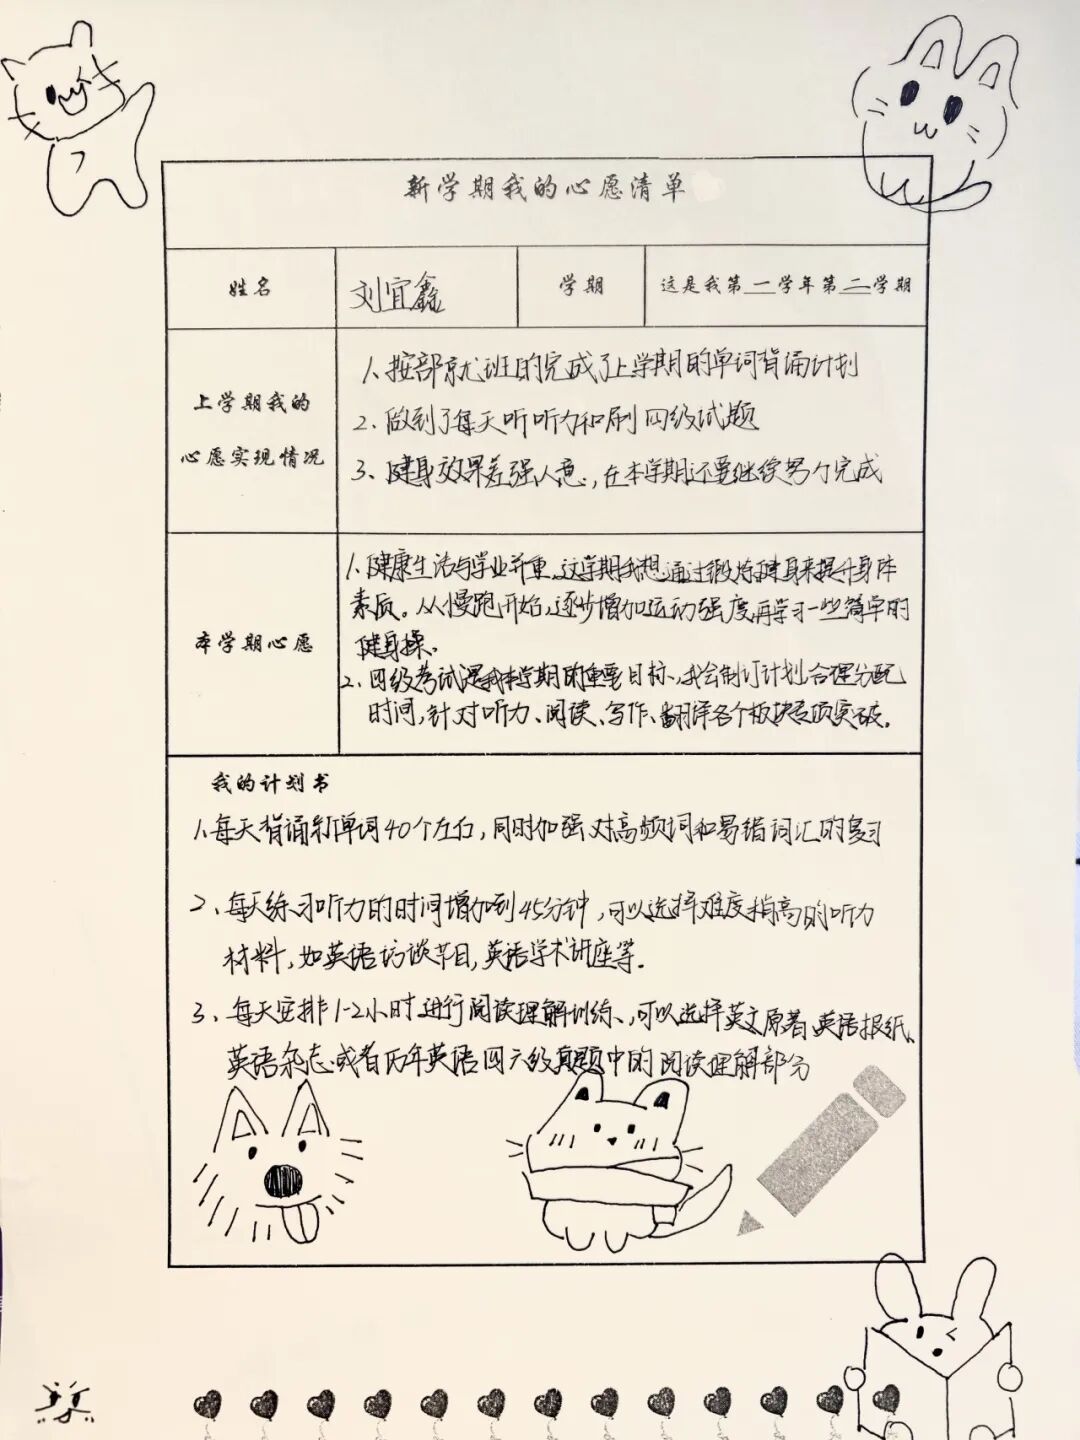 新学期我的心愿清单
姓名 刘宜鑫 学期 这是我第一学年第二学期
上学期我的
心愿实现情况
1、按部就班的完成了上学期的单词背诵计划
2、做到了每天听听力和刷四级试题
3、健身效果差强人意,在本学期还要继续努力完成
本学期心愿
1、健康生活与学业并重,这学期我想通过锻炼健身来提升身体
素质。从慢跑开始,逐步增加运动强度,再学习一些简单的
健身操。
2、四级考试是我本学期的重要目标,我会制订计划合理分配
时间,针对听力、阅读、写作、翻译各个板块专项突破。
我的计划书
1、每天背诵新单词40个左右,同时加强对高频词和易错词汇的复习
2、每天练习听力的时间增加到45分钟,可以选择难度稍高的听力
材料,如英语访谈节目,英语学术讲座等.
3、每天安排1-2小时进行阅读理解训练,可以选择英文原著、英语报纸、
英语杂志或者历年英语四六级真题中的阅读理解部分